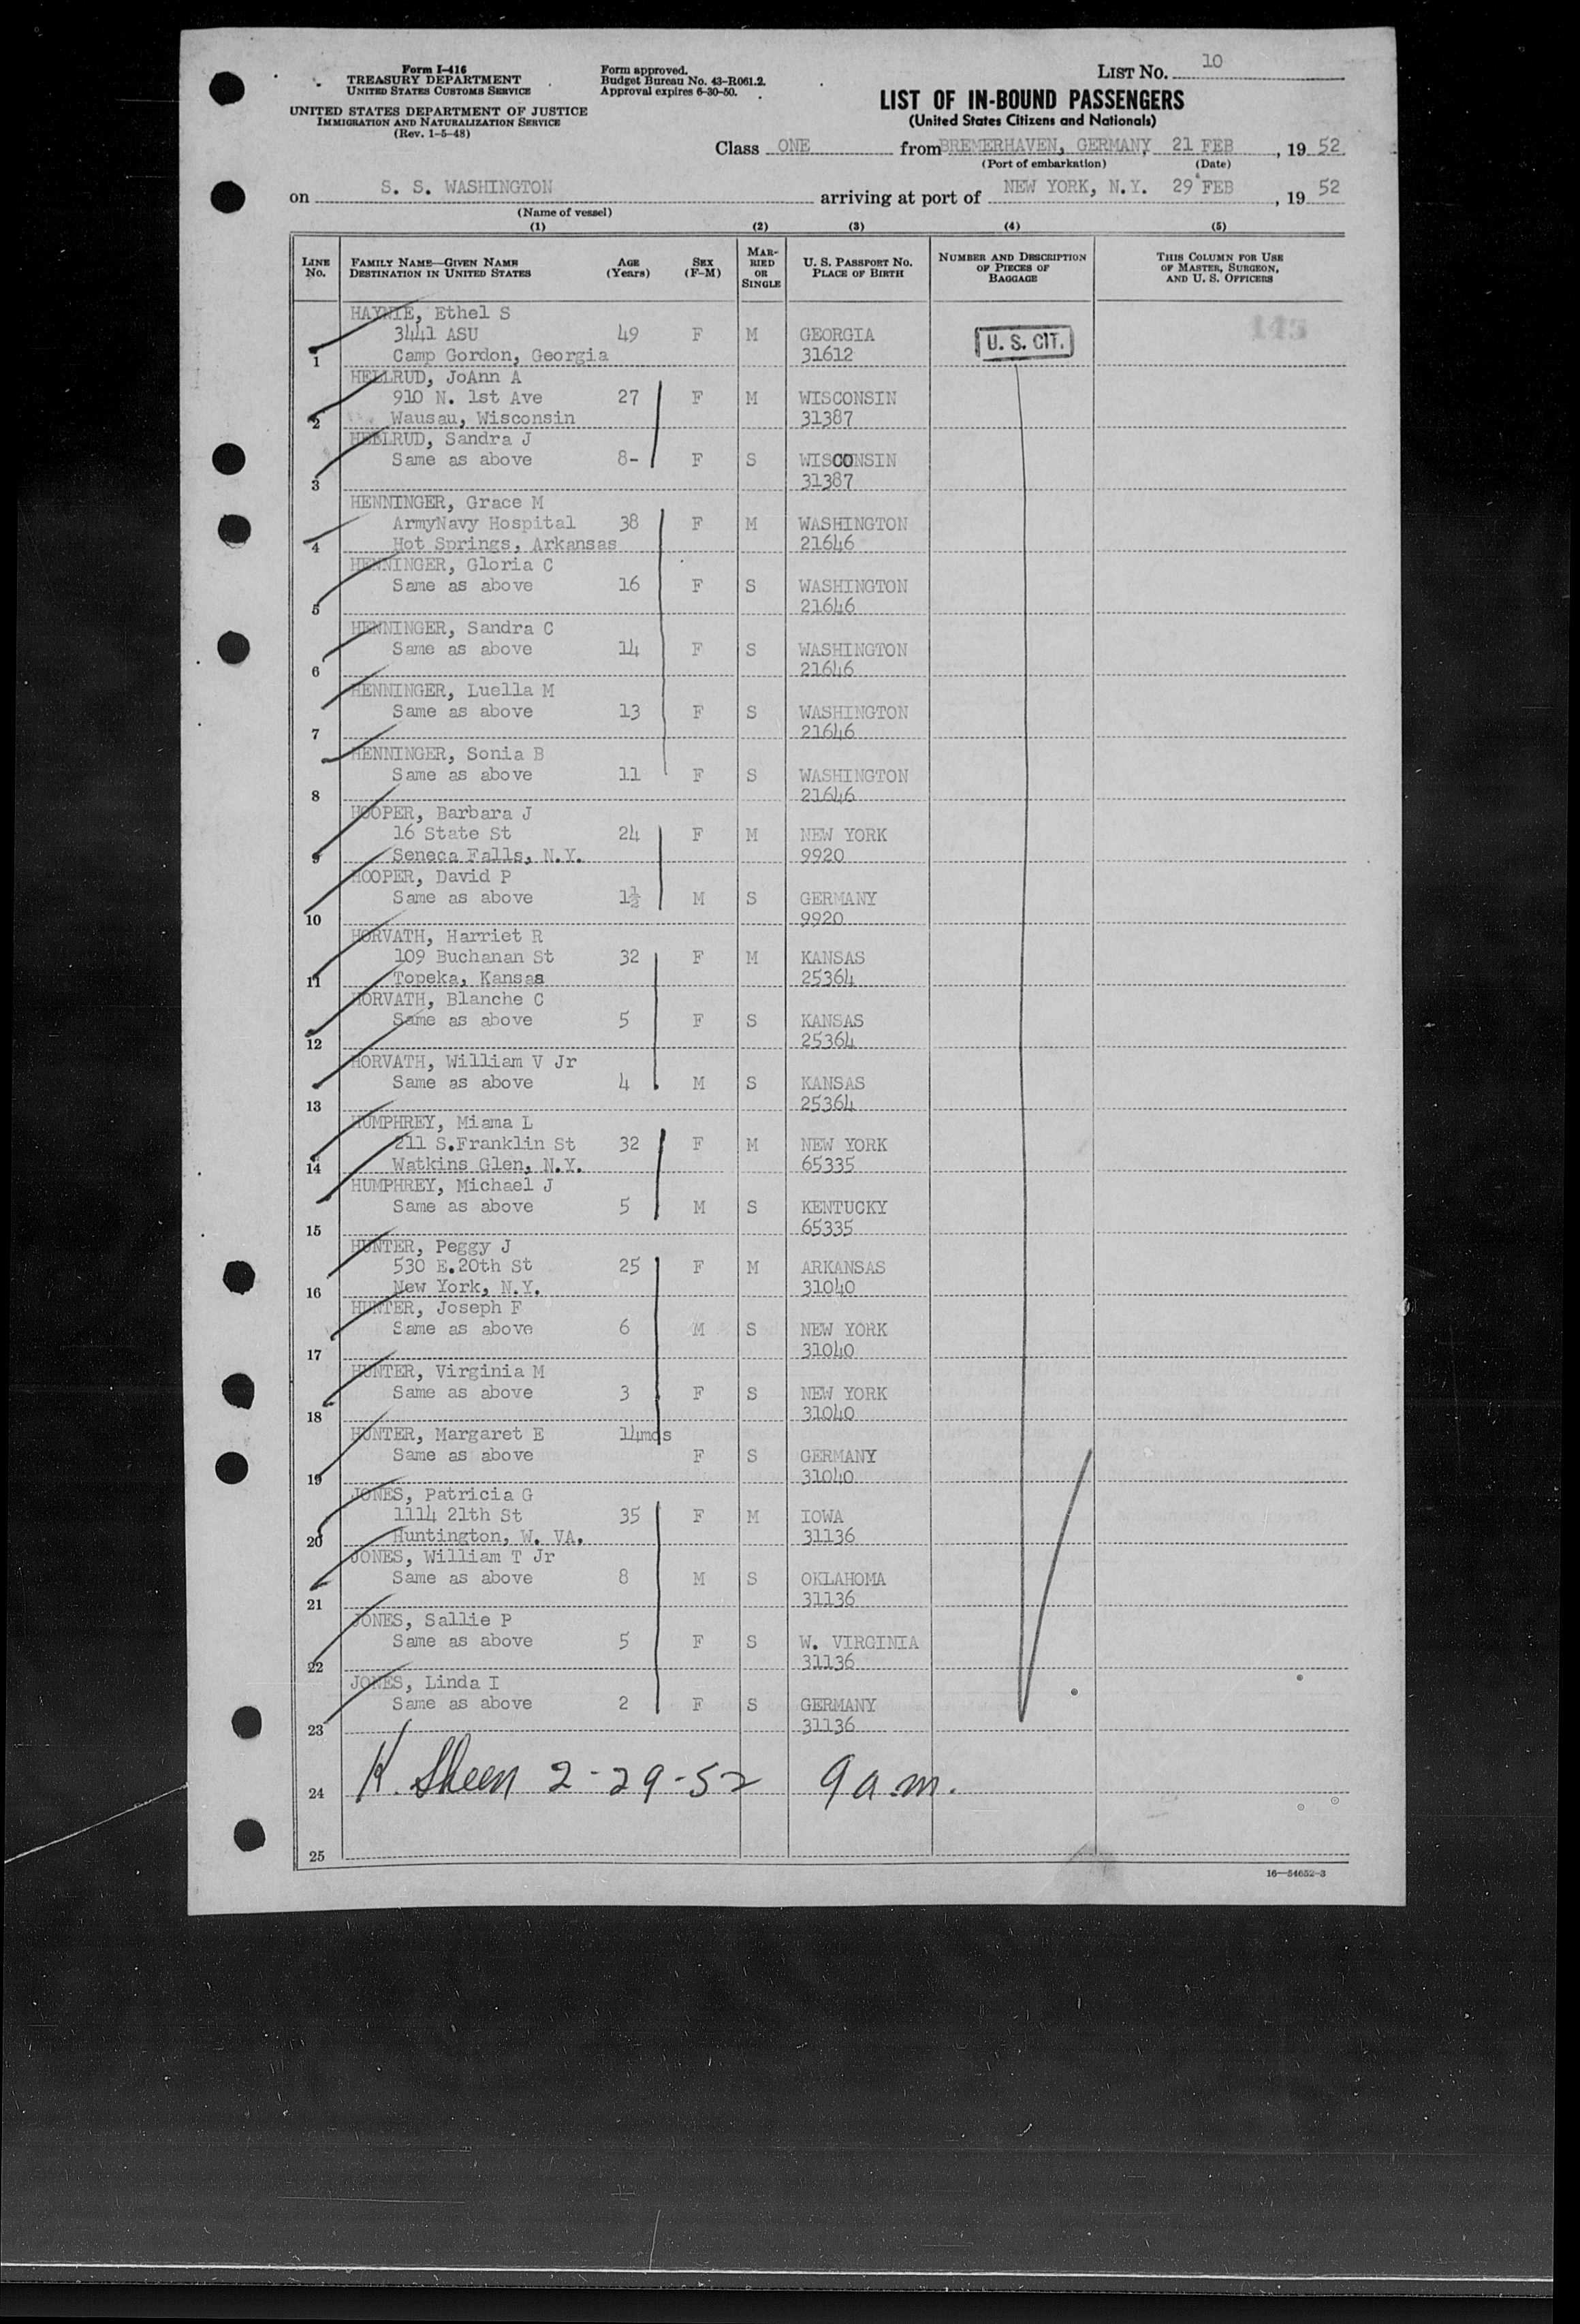 Form I-416
TREASURY DEPARTMENT
UNITED STATES CUSTOMS SERVICE
UNITED STATES DEPARTMENT OF JUSTICE
IMMIGRATION AND NATURALIZATION SERVICE
(Rev. 1-5-48)
Form approved.
Budget Bureau No. 43-R061.2.
Approval expires 6-30-50.
LIST NO. 10
LIST OF IN-BOUND PASSENGERS
(United States Citizens and Nationals)
Class ONE from BREMERHAVEN, GERMANY, 21 FEB, 19 52
(Port of embarkation) (Date)
on S. S. WASHINGTON arriving at port of NEW YORK, N.Y. 29 FEB, 19 52
(Name of vessel)
(1) (2) (3) (4) (5)
LINE No. FAMILY NAME—GIVEN NAME DESTINATION IN UNITED STATES AGE (Years) SEX (F-M) MARRIED OR SINGLE U. S. PASSPORT NO. PLACE OF BIRTH NUMBER AND DESCRIPTION OF PIECES OF BAGGAGE THIS COLUMN FOR USE OF MASTER, SURGEON, AND U. S. OFFICERS
HAYNIE, Ethel S
3441 ASU 49 F M GEORGIA U. S. CIT. 145
1 Camp Gordon, Georgia 31612
HELLRUD, JoAnn A
910 N. 1st Ave 27 F M WISCONSIN
2 Wausau, Wisconsin 31387
HELLRUD, Sandra J
Same as above 8- F S WISCONSIN
3 31387
HENNINGER, Grace M
ArmyNavy Hospital 38 F M WASHINGTON
4 Hot Springs, Arkansas 21646
HENNINGER, Gloria C
Same as above 16 F S WASHINGTON
5 21646
HENNINGER, Sandra C
Same as above 14 F S WASHINGTON
6 21646
HENNINGER, Luella M
Same as above 13 F S WASHINGTON
7 21646
HENNINGER, Sonia B
Same as above 11 F S WASHINGTON
8 21646
HOOPER, Barbara J
16 State St 24 F M NEW YORK
9 Seneca Falls, N.Y. 9920
HOOPER, David P
Same as above 1½ M S GERMANY
10 9920
HORVATH, Harriet R
109 Buchanan St 32 F M KANSAS
11 Topeka, Kansas 25364
HORVATH, Blanche C
Same as above 5 F S KANSAS
12 25364
HORVATH, William V Jr
Same as above 4 M S KANSAS
13 25364
HUMPHREY, Miama L
211 S.Franklin St 32 F M NEW YORK
14 Watkins Glen, N.Y. 65335
HUMPHREY, Michael J
Same as above 5 M S KENTUCKY
15 65335
HUNTER, Peggy J
530 E.20th St 25 F M ARKANSAS
16 New York, N.Y. 31040
HUNTER, Joseph F
Same as above 6 M S NEW YORK
17 31040
HUNTER, Virginia M
Same as above 3 F S NEW YORK
18 31040
HUNTER, Margaret E 14mos
Same as above F S GERMANY
19 31040
JONES, Patricia G
1114 21th St 35 F M IOWA
20 Huntington, W. VA. 31136
JONES, William T Jr
Same as above 8 M S OKLAHOMA
21 31136
JONES, Sallie P
Same as above 5 F S W. VIRGINIA
22 31136
JONES, Linda I
Same as above 2 F S GERMANY
23 31136
24 K. Sheen 2-29-52 9 a.m.
25
16—54652-3